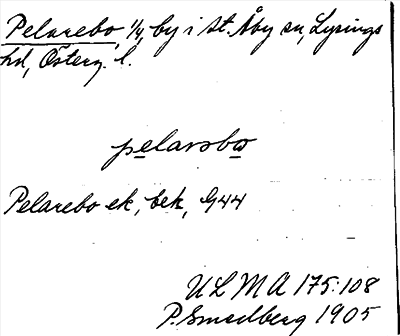 Pelarebo, 1/4, by i St. Åby sn, Lysings
hd, Österg. l.
pelarəbo
Pelarebo ek, bek, G44
ULMA 175:108
P. Smedberg 1905